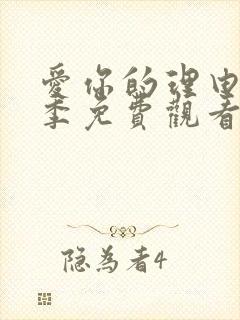 愛你的理由
季免費觀看
隐為者4